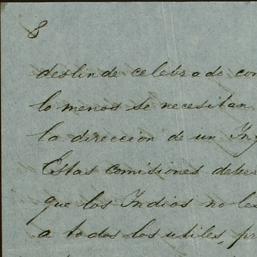 8
deslinde celebrado con
lo menos se necesitan
la direccion de un Ing
Estas comisiones debe
que los Indios no les
a todos los utiles, pr